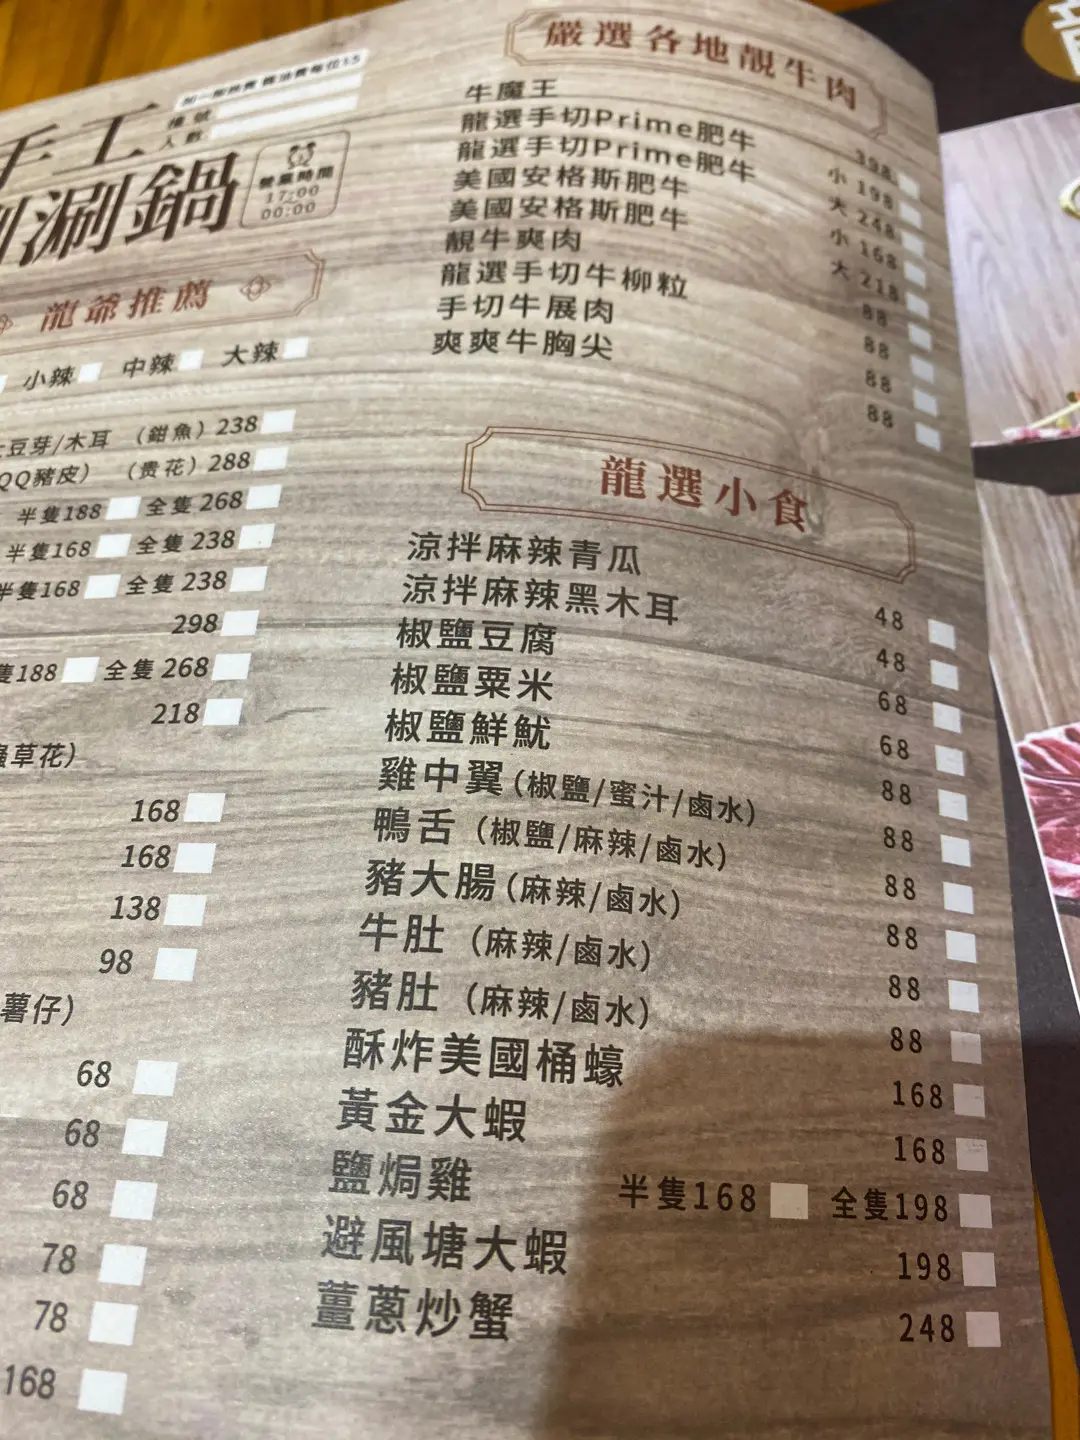 手工
涮鍋
營業時間
17:00
00:00
龍爺推薦
小辣 中辣 大辣
豆芽/木耳 （鉗魚）238
QQ豬皮） （贵花）288
半隻188 全隻268
半隻168 全隻238
半隻168 全隻238
298
隻188 全隻268
218
蟲草花）
168
168
138
98
薯仔）
68
68
68
78
78
168
嚴選各地靚牛肉
牛魔王 398
龍選手切Prime肥牛 小 198
龍選手切Prime肥牛 大 248
美國安格斯肥牛 小 168
美國安格斯肥牛 大 218
靚牛爽肉 88
龍選手切牛柳粒 88
手切牛展肉 88
爽爽牛胸尖 88
龍選小食
涼拌麻辣青瓜 48
涼拌麻辣黑木耳 48
椒鹽豆腐 68
椒鹽粟米 68
椒鹽鮮魷 88
雞中翼（椒鹽/蜜汁/鹵水） 88
鴨舌（椒鹽/麻辣/鹵水） 88
豬大腸（麻辣/鹵水） 88
牛肚（麻辣/鹵水） 88
豬肚（麻辣/鹵水） 88
酥炸美國桶蠔 168
黃金大蝦 168
鹽焗雞 半隻168 全隻198
避風塘大蝦 198
薑蔥炒蟹 248